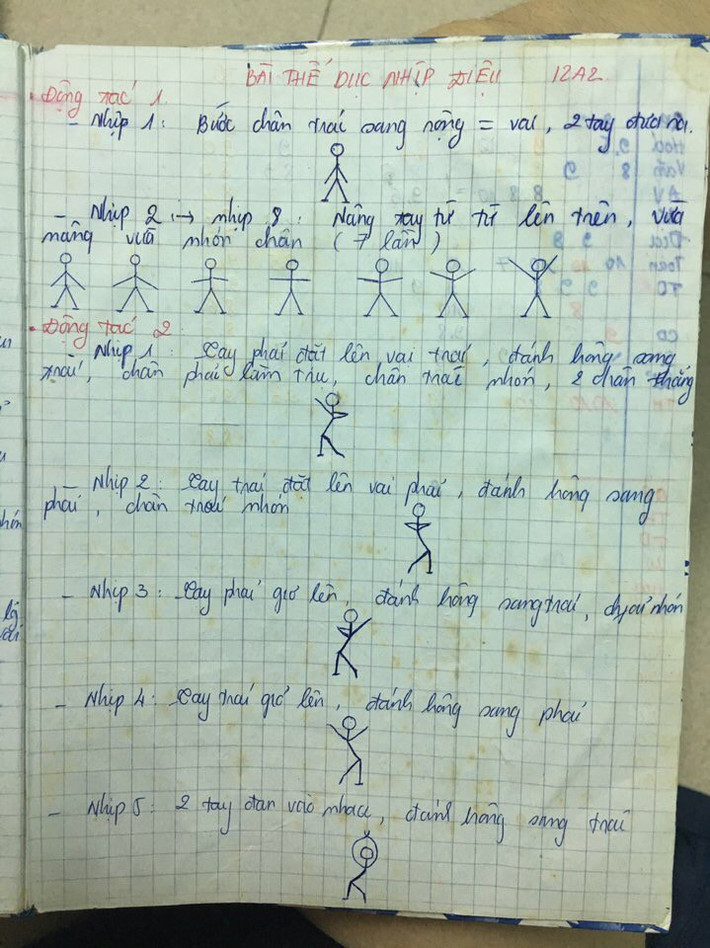 BÀI THỂ DỤC NHỊP ĐIỆU 12A2
• Động tác 1
- Nhịp 1: Bước chân trái sang rộng = vai, 2 tay đưa ra.
- Nhịp 2 → nhịp 8: Nâng tay từ từ lên trên, vừa
nâng vừa nhón chân (7 lần)
• Động tác 2
- Nhịp 1: Tay phải đặt lên vai trái, đánh hông sang
trái, chân phải làm trụ, chân trái nhón, 2 chân thẳng
- Nhịp 2: Tay trái đặt lên vai phải, đánh hông sang
phải, chân trái nhón
- Nhịp 3: Tay phải giơ lên, đánh hông sang trái, nhón
- Nhịp 4: Tay trái giơ lên, đánh hông sang phải
- Nhịp 5: 2 tay đan vào nhau, đánh hông sang trái